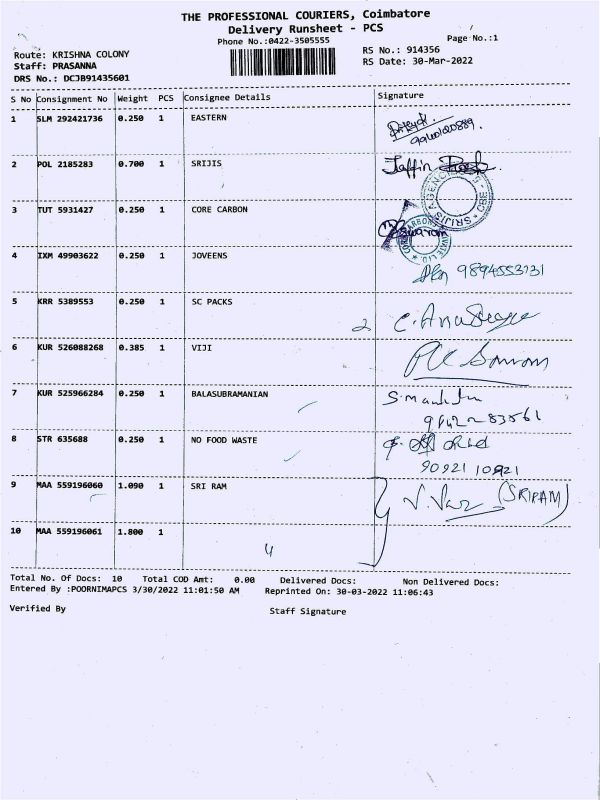 THE PROFESSIONAL COURIERS, Coimbatore
Delivery Runsheet - PCS
Phone No.:0422-3505555
Page No.:1
Route: KRISHNA COLONY
RS No.: 914356
Staff: PRASANNA
RS Date: 30-Mar-2022
DRS No.: DCJB91435601
S No Consignment No Weight PCS Consignee Details Signature
1 SLM 292421736 0.250 1 EASTERN
2 POL 2185283 0.700 1 SRIJIS
Jaffin
SRIJIS AGENCIES CBE
3 TUT 5931427 0.250 1 CORE CARBON
4 IXM 49903622 0.250 1 JOVEENS
9894553131
5 KRR 5389553 0.250 1 SC PACKS
2
6 KUR 526088268 0.385 1 VIJI
7 KUR 525966284 0.250 1 BALASUBRAMANIAN
8 STR 635688 0.250 1 NO FOOD WASTE
90921 10921
9 MAA 559196060 1.090 1 SRI RAM
(SRIRAM)
10 MAA 559196061 1.800 1
4
Total No. Of Docs: 10 Total COD Amt: 0.00 Delivered Docs: Non Delivered Docs:
Entered By :POORNIMAPCS 3/30/2022 11:01:50 AM Reprinted On: 30-03-2022 11:06:43
Verified By Staff Signature